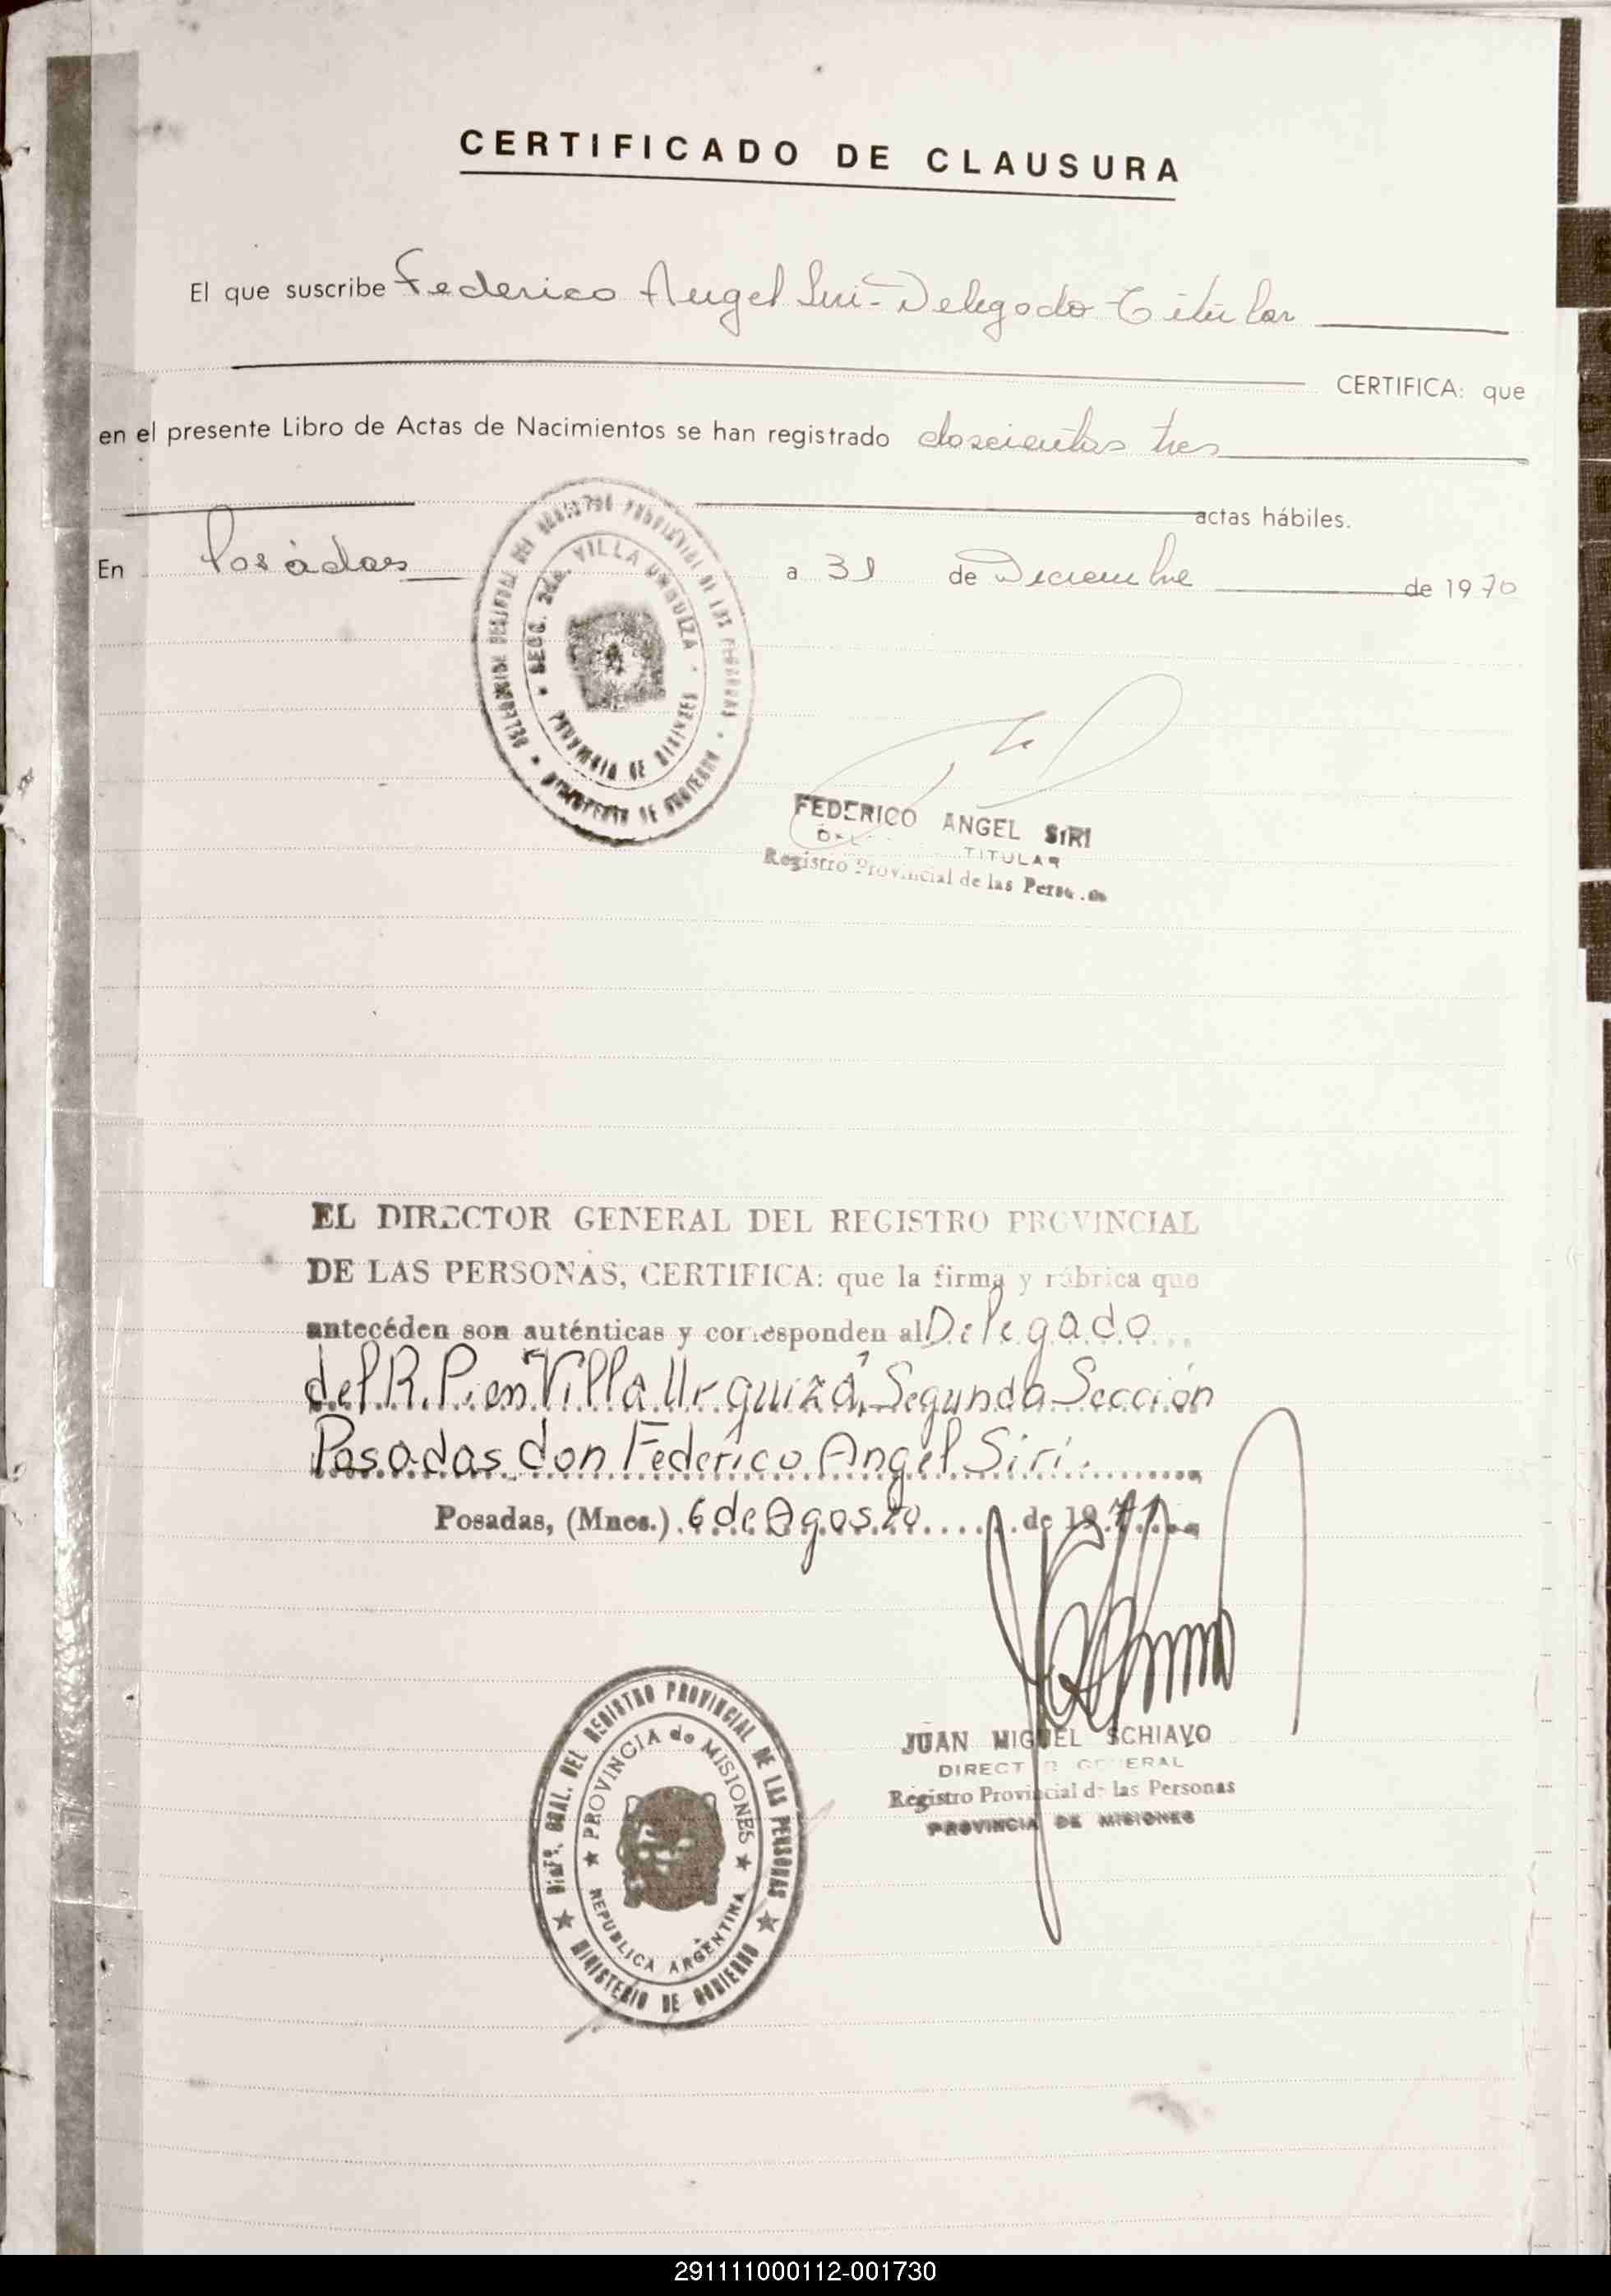 CERTIFICADO DE CLAUSURA
El que suscribe Federico Angel Siri - Delegado Titular
CERTIFICA: que
en el presente Libro de Actas de Nacimientos se han registrado doscientas tres
actas hábiles.
En Posadas a 31 de Diciembre de 1970
SECC. 2da. VILLA URQUIZA
PROVINCIA DE MISIONES
MINISTERIO DE GOBIERNO
FEDERICO ANGEL SIRI
TITULAR
Registro Provincial de las
EL DIRECTOR GENERAL DEL REGISTRO PROVINCIAL
DE LAS PERSONAS, CERTIFICA: que la firma y rúbrica que
antecéden son auténticas y corresponden al Delegado
del R.P. en "Villa Urquiza", Segunda Sección
Posadas don Federico Angel Siri.
Posadas, (Mnes.) 6 de Agosto de 1971
DIRº. GRAL. DEL REGISTRO PROVINCIAL DE LAS PERSONAS
PROVINCIA de MISIONES
REPUBLICA ARGENTINA
MINISTERIO DE GOBIERNO
JUAN MIGUEL SCHIAVO
DIRECTOR GENERAL
Registro Provincial de las Personas
PROVINCIA DE MISIONES
291111000112-001730